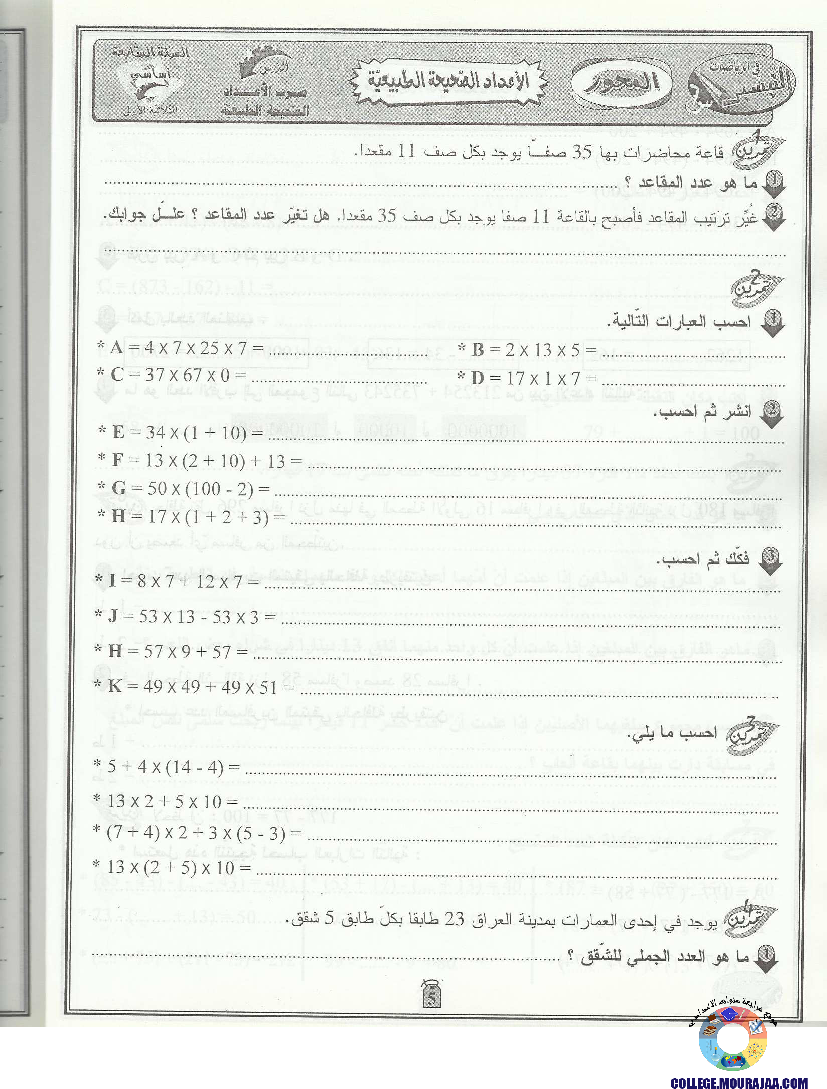 في الرياضيات
المحور
الأعداد الصّحيحة الطبيعيّة
الدرس
ضرب الأعداد
الصّحيحة الطبيعية
السنة السابعة
أساسي
تمرين 1 قاعة محاضرات بها 35 صفّا يوجد بكل صف 11 مقعدا.
1 ما هو عدد المقاعد ؟ ..........
2 غُيِّر ترتيب المقاعد فأصبح بالقاعة 11 صفا يوجد بكل صف 35 مقعدا. هل تغيّر عدد المقاعد ؟ علّل جوابك.
..........
تمرين 2
1 احسب العبارات التّالية.
* A = 4 x 7 x 25 x 7 = .......... * B = 2 x 13 x 5 = ..........
* C = 37 x 67 x 0 = .......... * D = 17 x 1 x 7 = ..........
2 انشر ثم احسب.
* E = 34 x (1 + 10) = ..........
* F = 13 x (2 + 10) + 13 = ..........
* G = 50 x (100 - 2) = ..........
* H = 17 x (1 + 2 + 3) = ..........
3 فكّك ثم احسب.
* I = 8 x 7 + 12 x 7 = ..........
* J = 53 x 13 - 53 x 3 = ..........
* H = 57 x 9 + 57 = ..........
* K = 49 x 49 + 49 x 51 = ..........
تمرين 3 احسب ما يلي.
* 5 + 4 x (14 - 4) = ..........
* 13 x 2 + 5 x 10 = ..........
* (7 + 4) x 2 + 3 x (5 - 3) = ..........
* 13 x (2 + 5) x 10 = ..........
تمرين 4 يوجد في إحدى العمارات بمدينة العراق 23 طابقا بكلّ طابق 5 شقق.
1 ما هو العدد الجملي للشّقق ؟ ..........
5
COLLEGE.MOURAJAA.COM